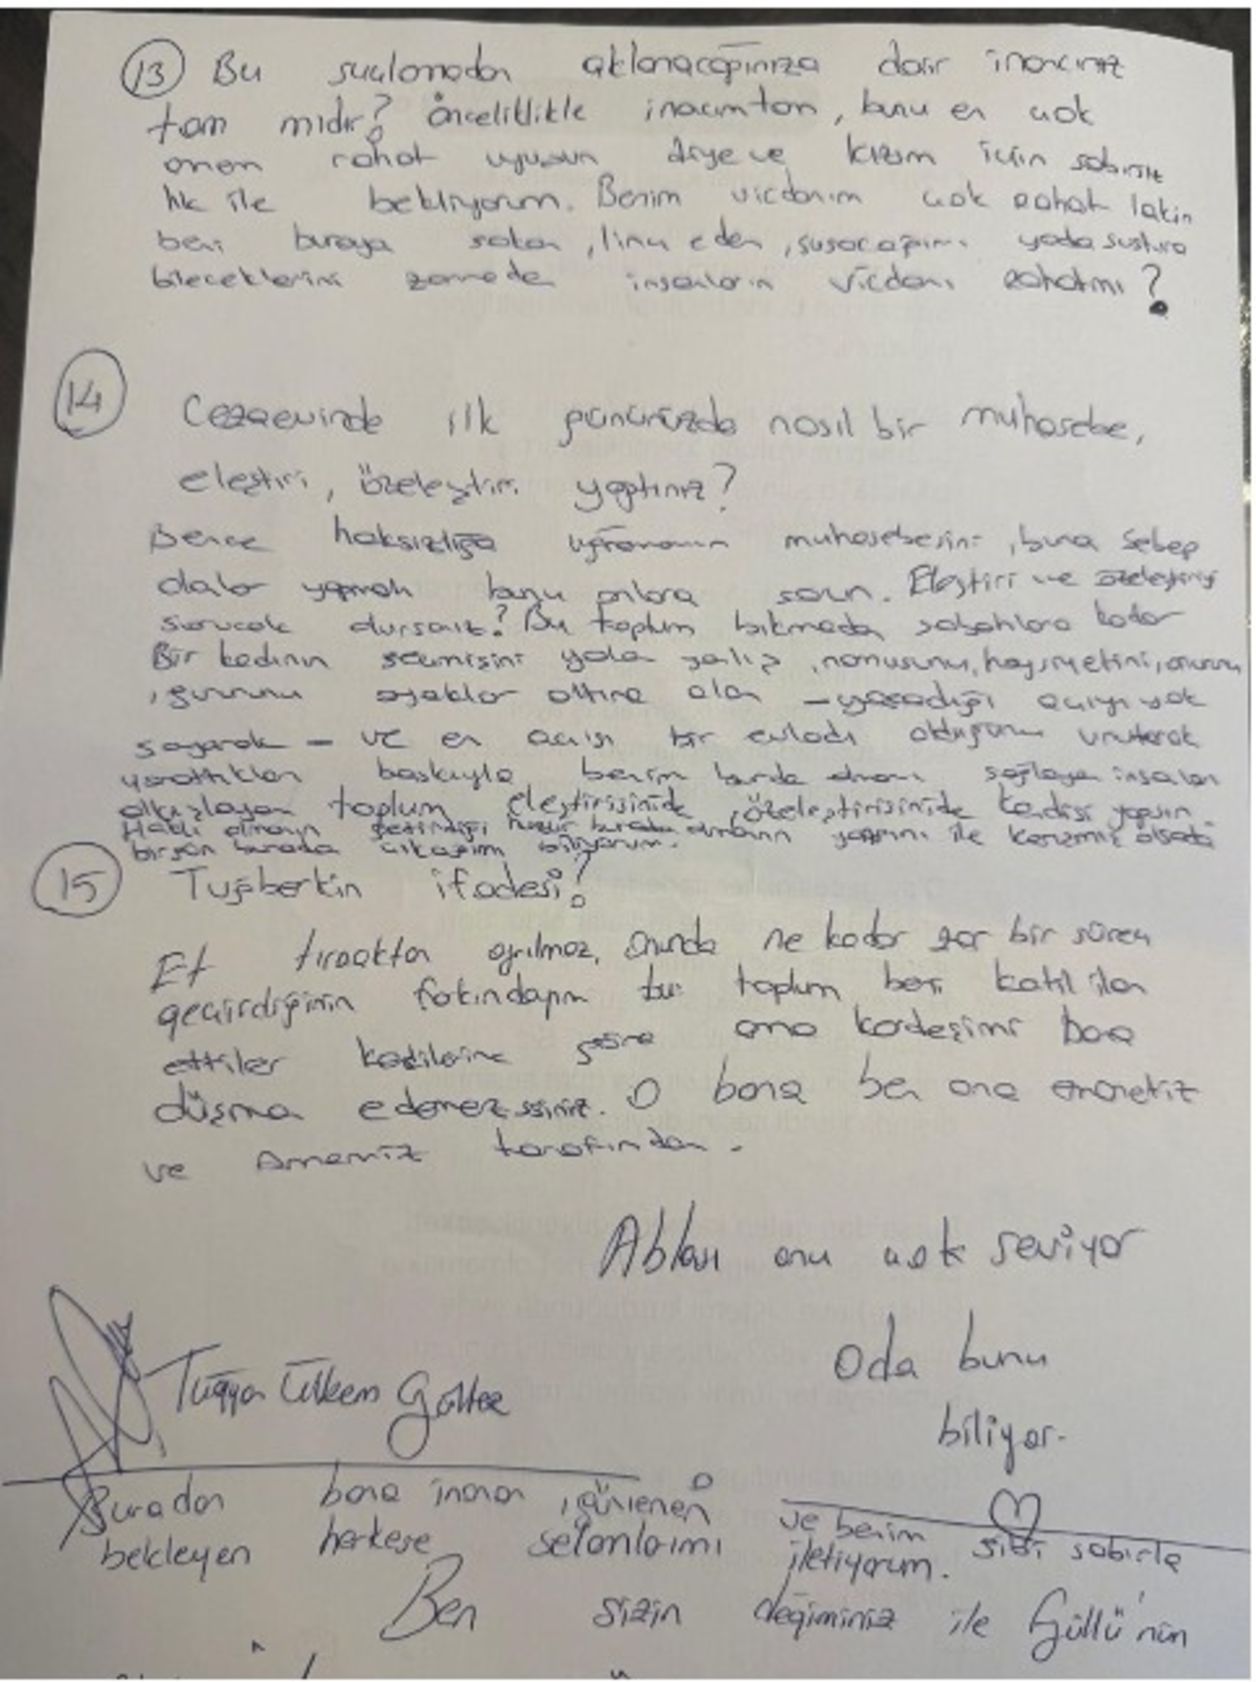 13 Bu suçlamadan aklanacağınıza dair inancınız
tam mıdır? Öncelitlikle inancım tam, bunu en çok
annem rahat uyusun diye ve kızım için sabırsız
lık ile bekliyorum. Benim vicdanım çok rahat lakin
beni buraya sokan, linç eden, susacağımı yada sustura
bileceklerini zanneden insanların vicdanı rahatmı?
14 Cezaevinde ilk gününüzde nasıl bir muhasebe,
eleştiri, özeleştiri yaptınız?
Bence haksızlığa uğramanın muhasebesini, buna sebep
olanlar yapmalı bunu onlara sorun. Eleştiri ve özeleştiriyi
soracak olursanız? Bu toplum bıkmadan sabahlara kadar
Bir kadının geçmişini yalan yanlış, namusunu, haysiyetini, onurunu
, gururunu ayaklar altına alan – yaşadığı acıyı yok
sayarak – ve en acısı bir evladı olduğunu unutarak
yarattıkları baskıyla benim burda olmamı sağlayan insanları
alkışlayan toplum eleştirisinide, özeleştirisinide kendisi yapsın.
Haklı olmanın getirdiği burada olmanın yaşını ile olsada
birgün buradan çıkacağımı biliyorum.
15 Tuğberkin ifadesi?
Et tırnaktan ayrılmaz, Onunda ne kadar zor bir süreç
geçirdiğinin farkındayım bu toplum beni katil ilan
ettiler kendilerine göre ama kardeşimi bana
düşman edemezssiniz. O bana ben ona emanetiz
ve Annemiz tarafından.
Ablası onu çok seviyor
Oda bunu
biliyor.
Tuğyan Ülkem Gülter
Buradan bana inanan, güvenen ve benim gibi sabırla
bekleyen herkese selamlarımı iletiyorum.
Ben sizin değiminiz ile Güllü'nün